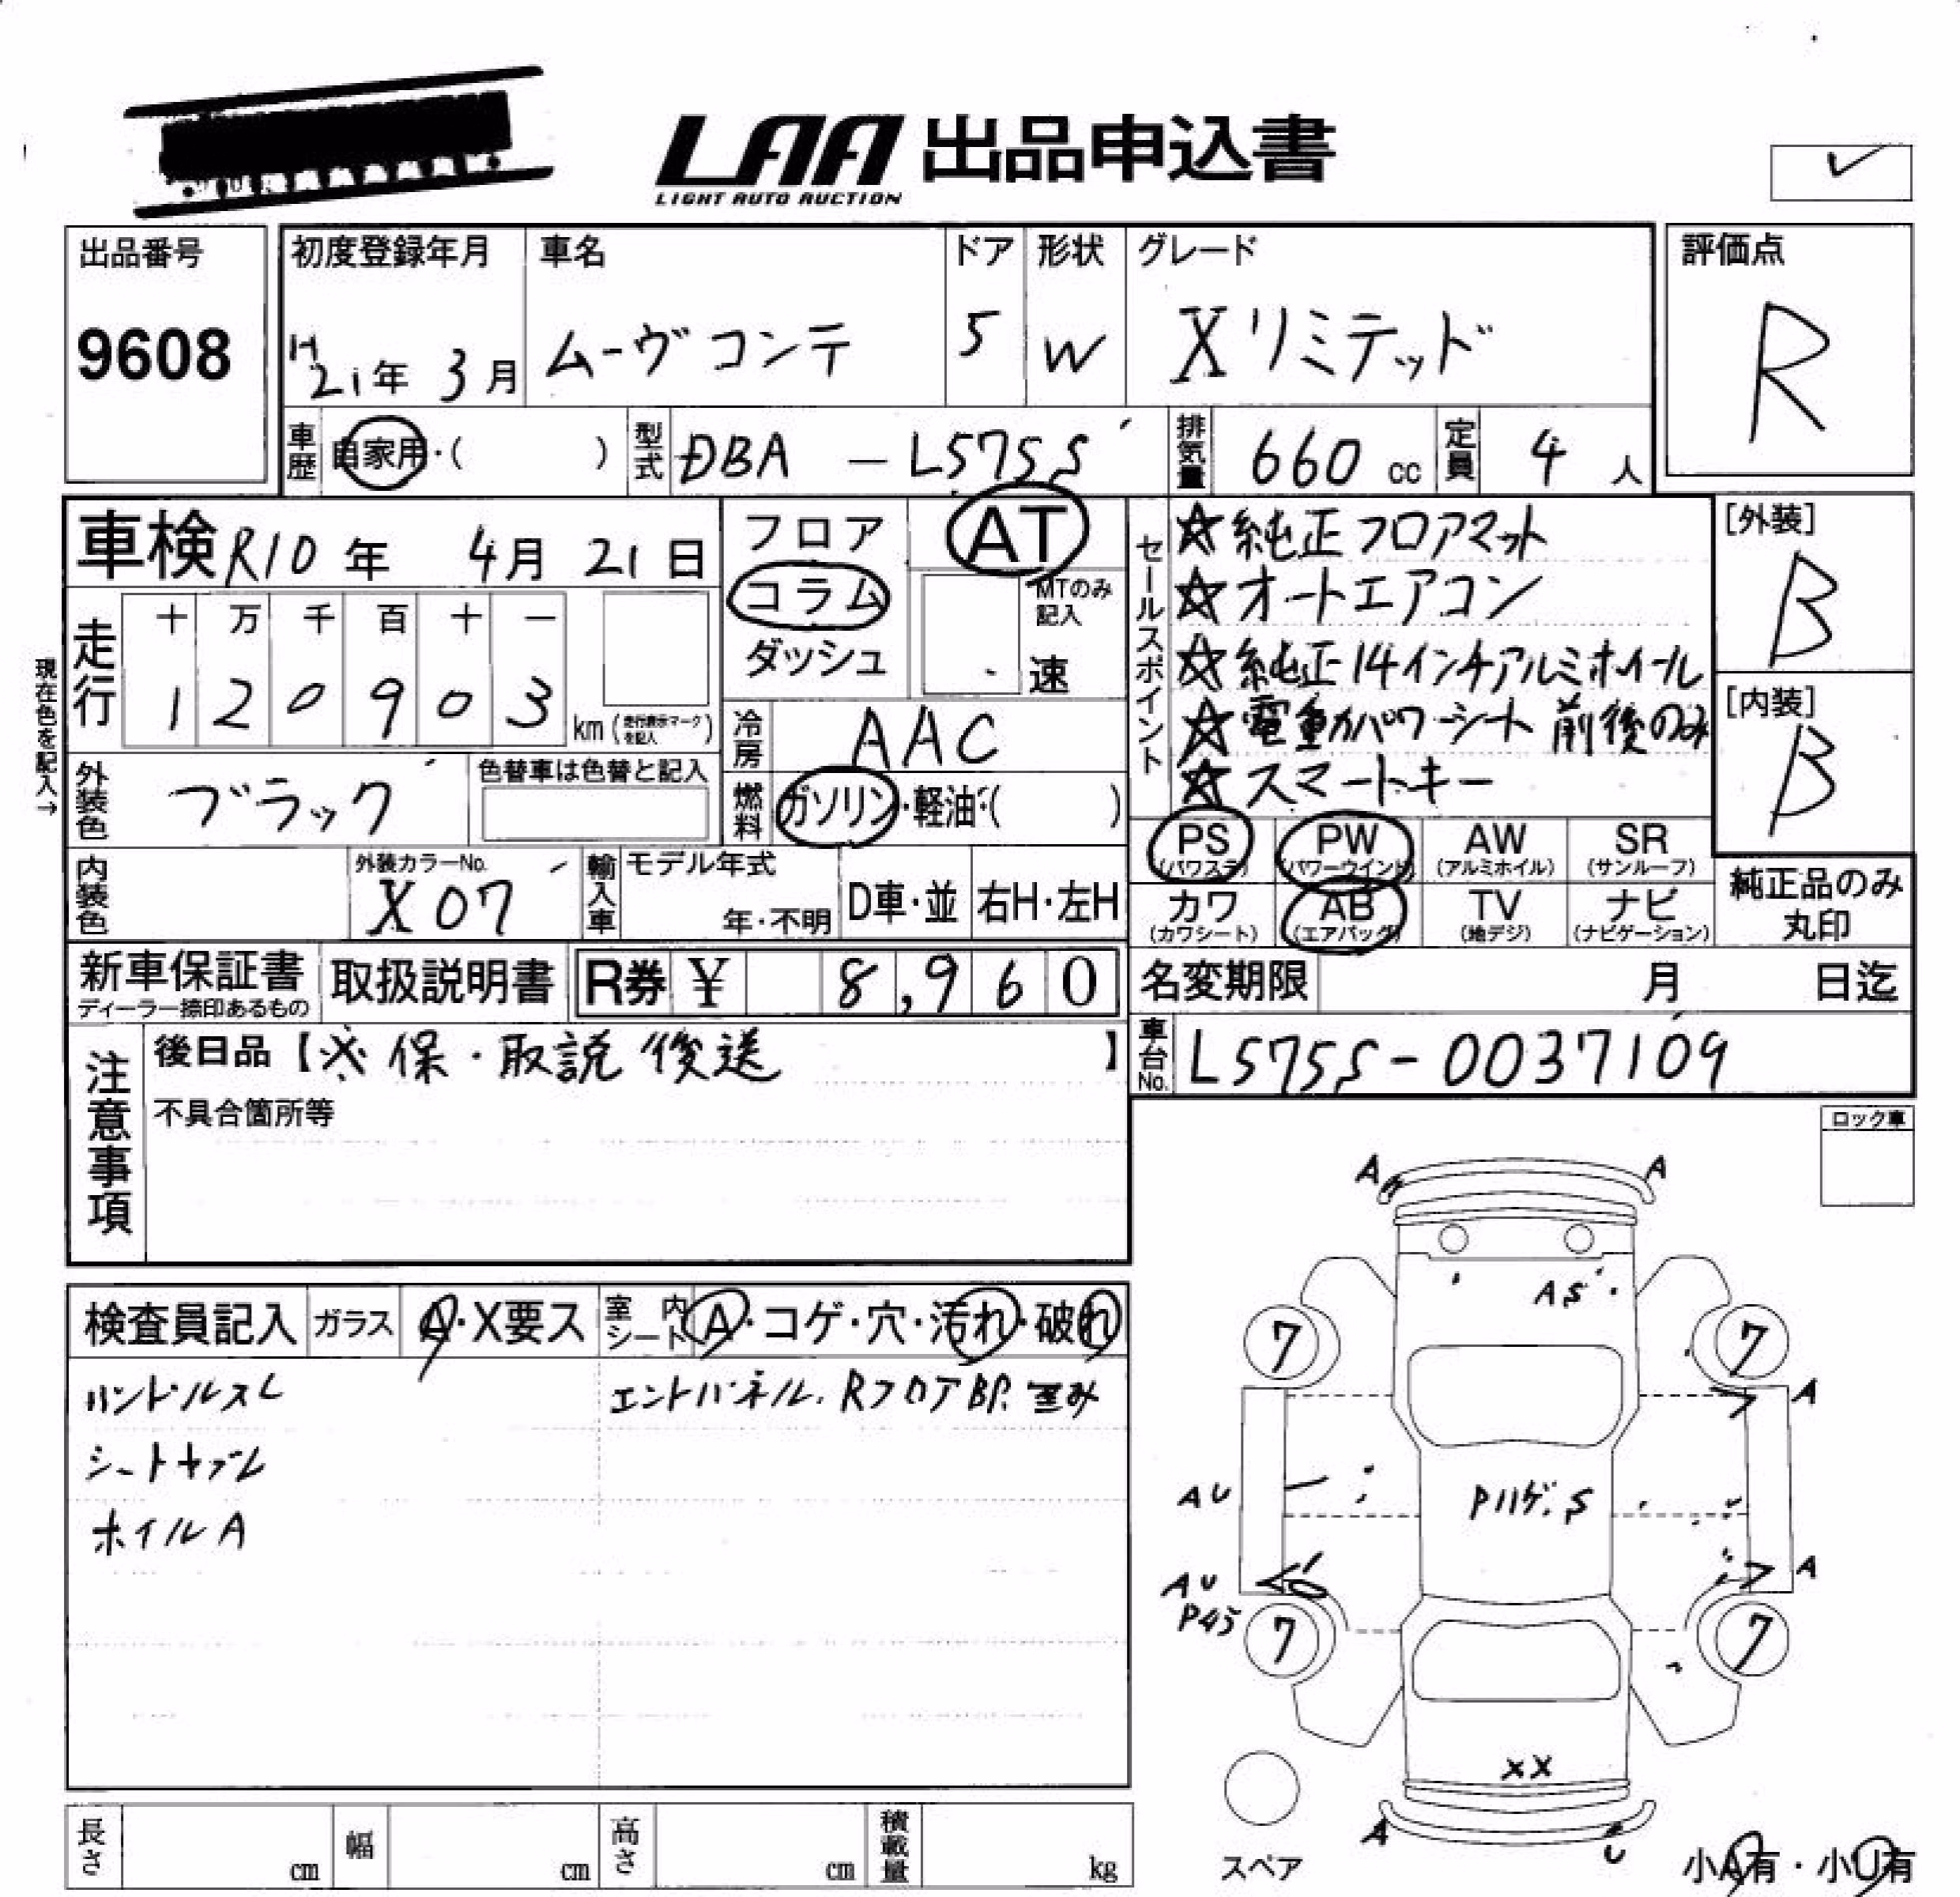 LAA 出品申込書
LIGHT AUTO AUCTION
出品番号
9608
初度登録年月
H21年 3月
車名
ムーヴコンテ
ドア
5
形状
W
グレード
Xリミテッド
評価点
R
車歴 自家用・( )
型式 DBA - L575S
排気量 660 cc
定員 4 人
車検 R10年 4月 21日
現在色を記入→
走行
十 万 千 百 十 一
1 2 0 9 0 3 km(走行表示マークを記入)
フロア
コラム
ダッシュ
AT
MTのみ記入
速
冷房 AAC
燃料 ガソリン・軽油・( )
外装色 ブラック
色替車は色替と記入
内装色
外装カラーNo.
X07
輸入車
モデル年式
年・不明
D車・並
右H・左H
セールスポイント
☆純正フロアマット
☆オートエアコン
☆純正14インチアルミホイール
☆電動パワーシート 前後のみ
☆スマートキー
[外装]
B
[内装]
B
PS (パワステ)
PW (パワーウインド)
AW (アルミホイル)
SR (サンルーフ)
カワ (カワシート)
AB (エアバッグ)
TV (地デジ)
ナビ (ナビゲーション)
純正品のみ丸印
新車保証書
ディーラー捺印あるもの
取扱説明書
R券 ¥ 8,960
名変期限 月 日迄
車台No. L575S-0037109
注意事項
後日品【※保・取説 後送】
不具合箇所等
ロック車
検査員記入
ガラス A・X要ス
室内シート A・コゲ・穴・汚れ・破れ
ハンドルスレ
エンドパネル.Rフロア部.歪み
シートヤブレ
ホイルA
A A
AS
7 7
A
AU
Pハゲ.S
AU
A
7 7
XX
A U
スペア
小A有・小U有
長さ cm
幅 cm
高さ cm
積載量 kg